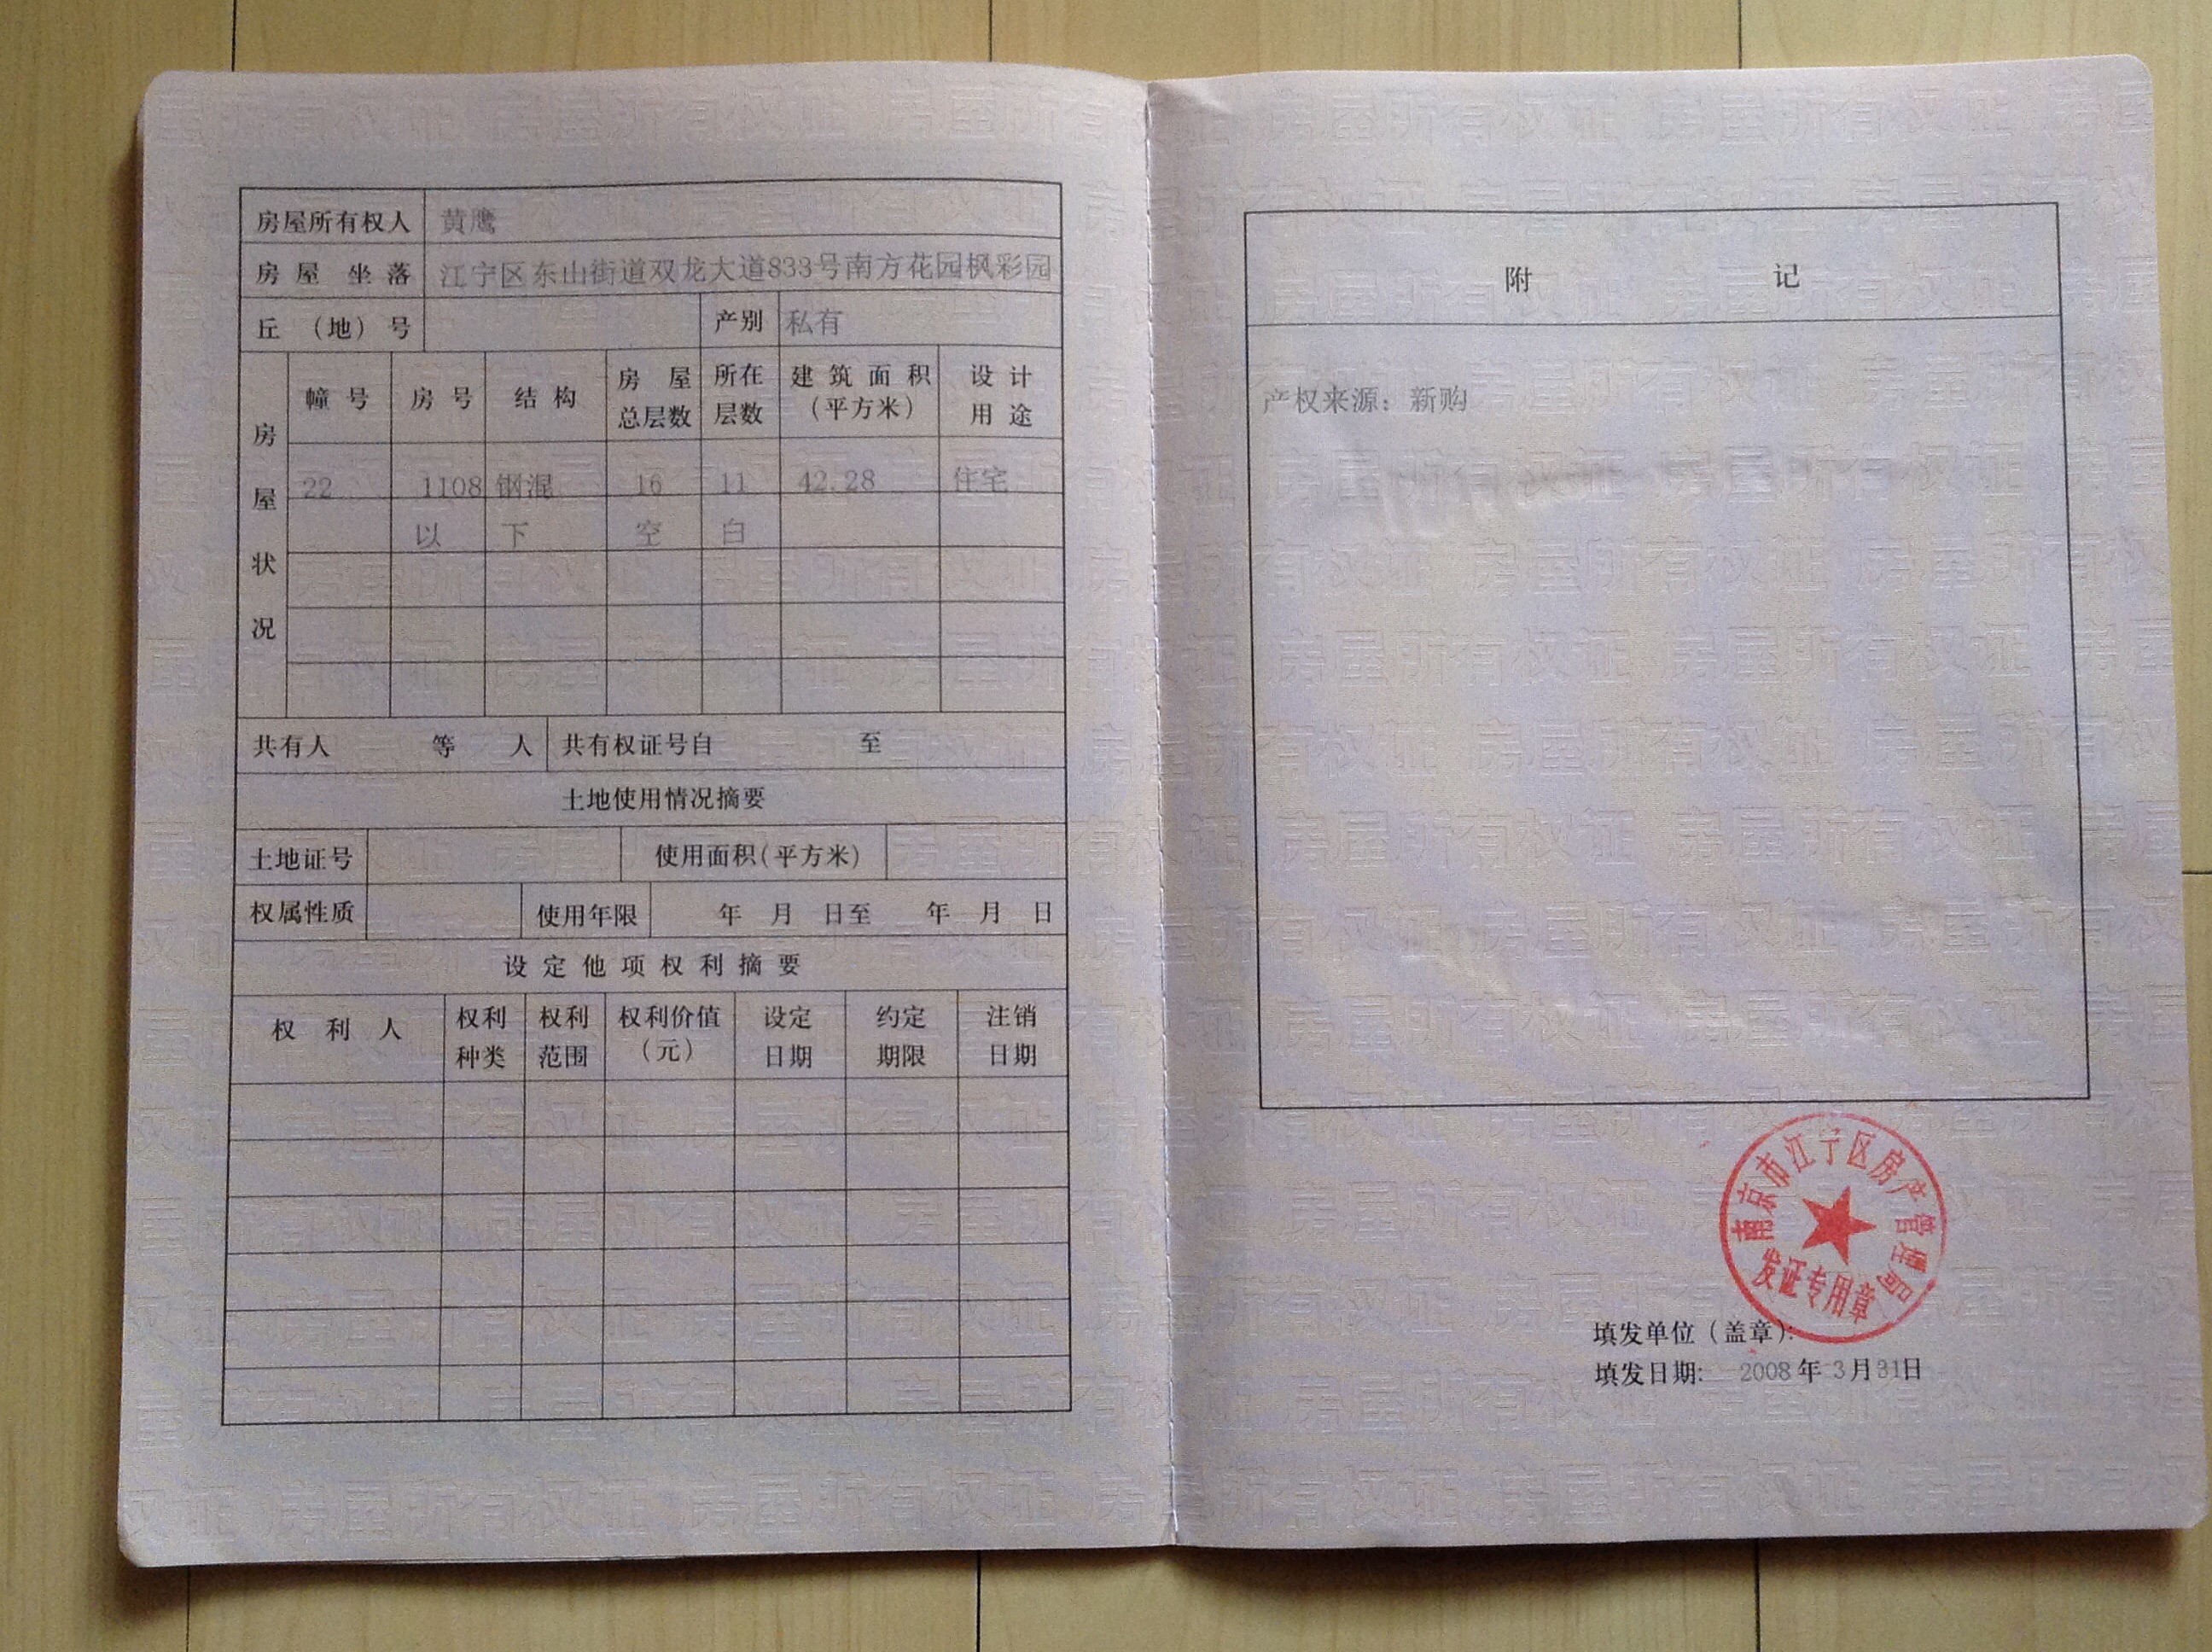 房屋所有权人 黄鹰
房屋坐落 江宁区东山街道双龙大道833号南方花园枫彩园
丘（地）号 产别 私有
房屋状况
幢号 房号 结构 房屋总层数 所在层数 建筑面积（平方米） 设计用途
22 1108 钢混 16 11 42.28 住宅
以 下 空 白
共有人 等 人 共有权证号自 至
土地使用情况摘要
土地证号 使用面积（平方米）
权属性质 使用年限 年 月 日至 年 月 日
设定他项权利摘要
权利人 权利种类 权利范围 权利价值（元） 设定日期 约定期限 注销日期
附 记
产权来源：新购
南京市江宁区房产管理局
发证专用章
填发单位（盖章）：
填发日期： 2008年3月31日
房屋所有权证